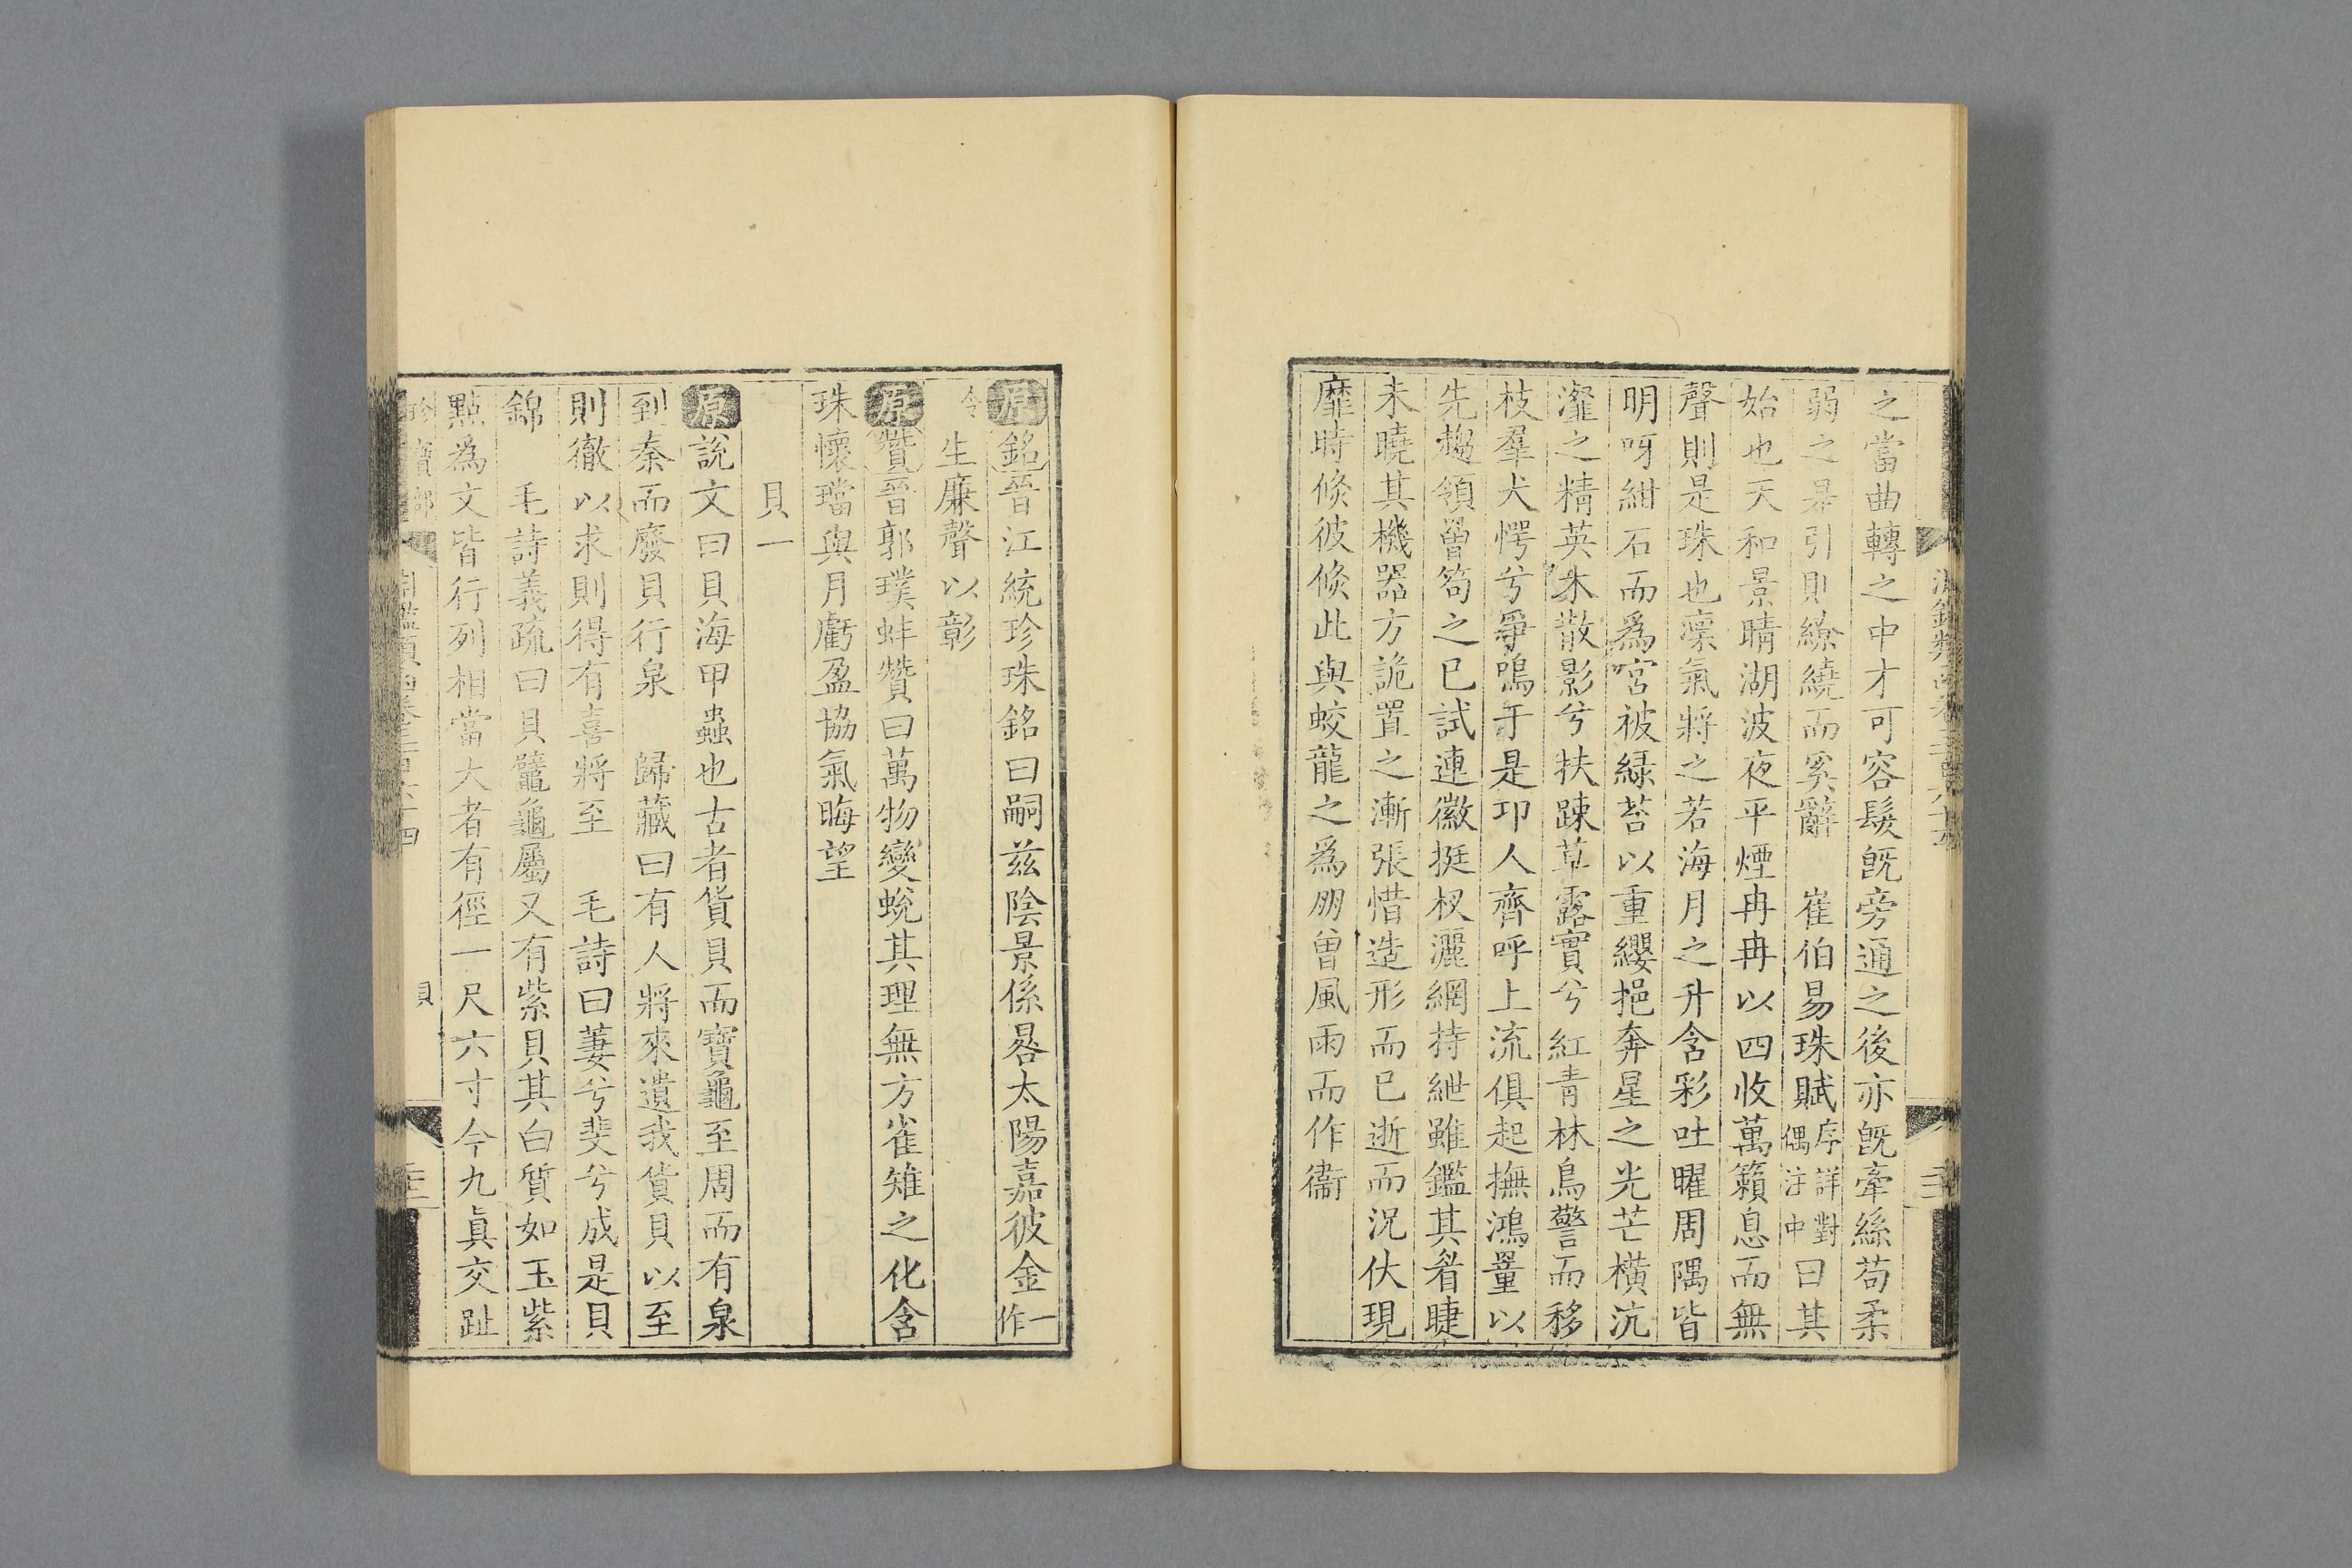 之當曲轉之中才可容髮旣旁通之後亦旣牽絲苟柔
弱之是引則繚繞而奚辭　崔伯易珠賦序詳對偶注中曰其
始也天和景晴湖波夜平煙冉冉以四收萬籟息而無
聲則是珠也凜氣將之若海月之升含彩吐曜周隅皆
明呀紺石而爲宮被綠苔以重纓挹奔星之光芒橫沆
瀣之精英木散影兮扶踈草露實兮紅青林鳥警而移
枝羣犬愕兮爭鳴于是卭人齊呼上流俱起撫鴻量以
先趨領罾笱之已試連徽挺杈灑網持紲雖鑑其睂睫
未曉其機器方詭置之漸張惜造形而已逝而況伏現
靡時倏彼倏此與蛟龍之爲朋曾風雨而作衞
原銘晉江統珍珠銘曰嗣茲陰景係晷太陽嘉彼金一作
令生廉聲以彰
原贊晉郭璞蚌贊曰萬物變蛻其理無方雀雉之化含
珠懷璫與月虧盈協氣晦望
貝一
原說文曰貝海甲蟲也古者貨貝而寶龜至周而有泉
到秦而廢貝行泉　歸藏曰有人將來遺我貨貝以至
則徹以求則得有喜將至　毛詩曰萋兮斐兮成是貝
錦　毛詩義疏曰貝鼊龜屬又有紫貝其白質如玉紫
點爲文皆行列相當大者有徑一尺六寸今九眞交趾
貝